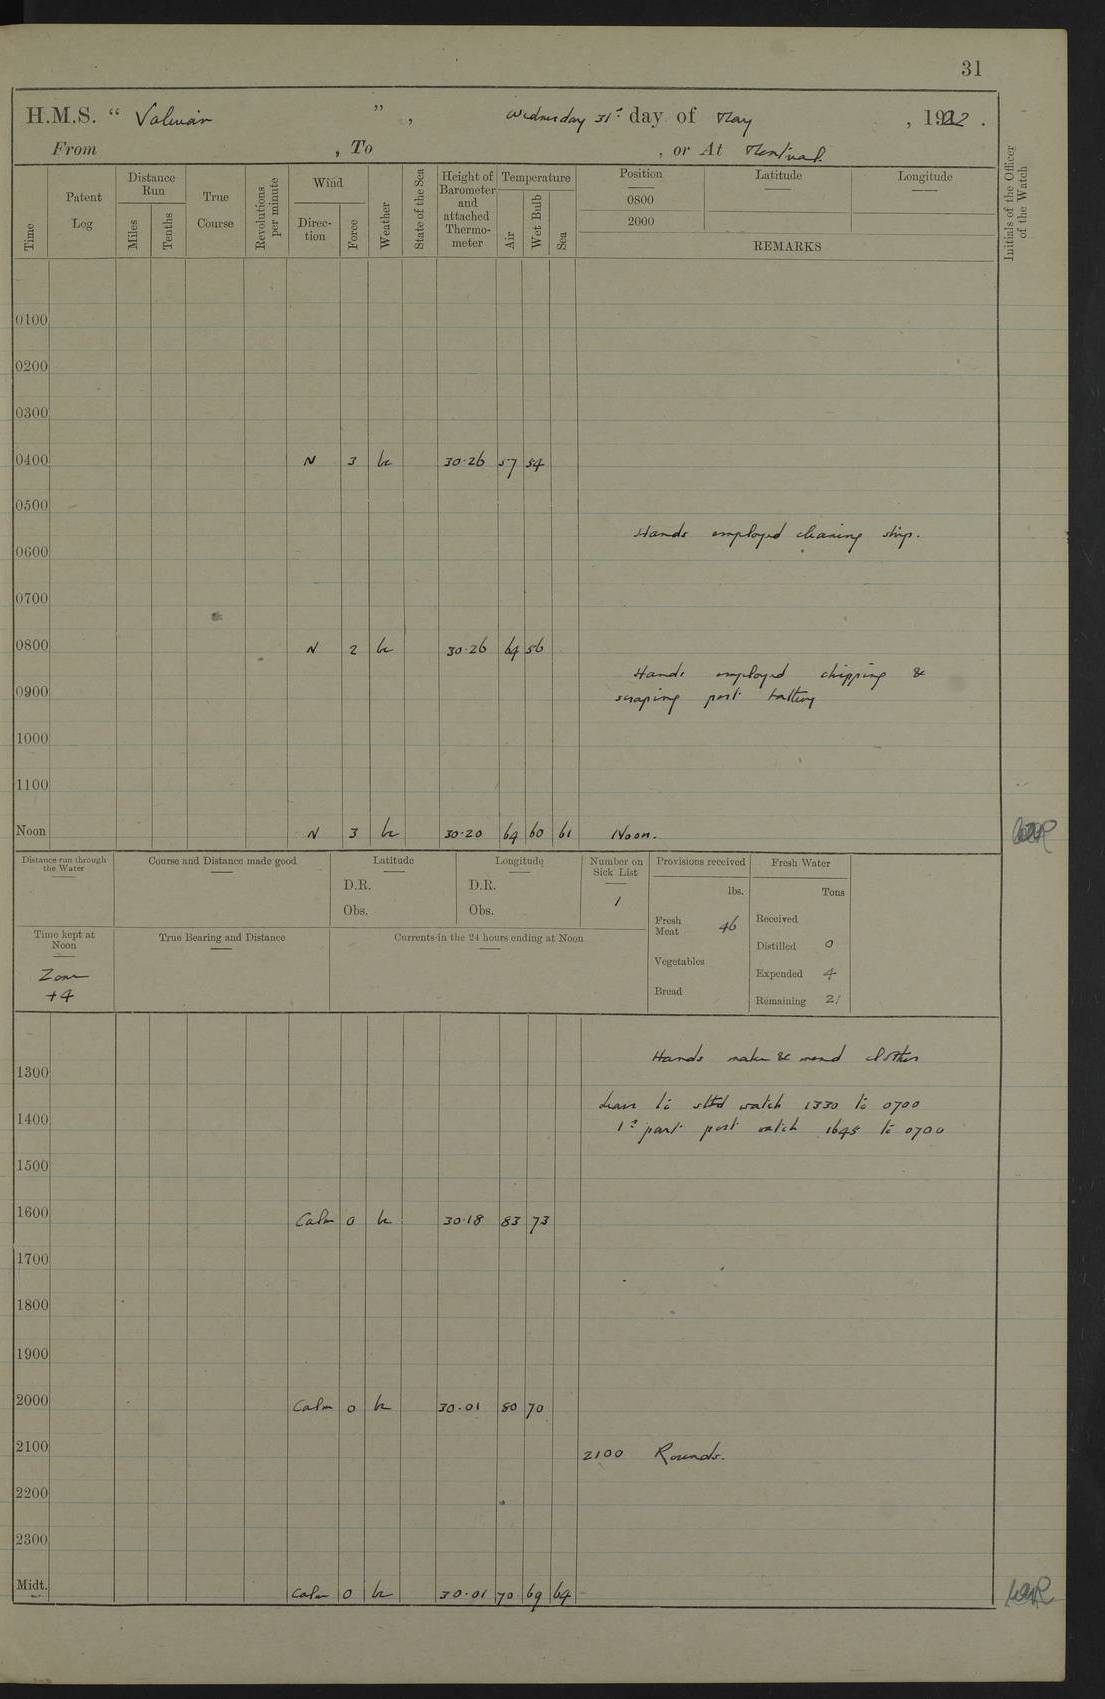 31
H.M.S. " Valerian ", Wednesday 31st day of May, 1922.
From , To , or At Montreal.
Time
Patent Log
Distance Run
Miles
Tenths
True Course
Revolutions per minute
Wind
Direction
Force
Weather
State of the Sea
Height of Barometer and attached Thermometer
Temperature
Air
Wet Bulb
Sea
Position
0800
2000
Latitude
Longitude
REMARKS
Initials of the Officer of the Watch
0100
0200
0300
0400 N 3 bc 30.26 57 54
0500
Hands employed cleaning ship.
0600
0700
0800 N 2 bc 30.26 64 56
Hands employed chipping &
0900 scraping port battery
1000
1100
Noon N 3 bc 30.20 64 60 61 Noon.
Distance run through the Water
Course and Distance made good
Latitude
D.R.
Obs.
Longitude
D.R.
Obs.
Number on Sick List
1
Provisions received
lbs.
Fresh Meat 46
Vegetables
Bread
Fresh Water
Tons
Received
Distilled 0
Expended 4
Remaining 21
Time kept at Noon
Zone
+4
True Bearing and Distance
Currents in the 24 hours ending at Noon
Hands make & mend clothes
1300
Leave to stbd watch 1330 to 0700
1400
1st part port watch 1645 to 0700
1500
1600 Calm 0 bc 30.18 83 73
1700
1800
1900
2000 Calm 0 bc 30.01 80 70
2100 2100 Rounds.
2200
2300
Midt. Calm 0 bc 30.01 70 69 64